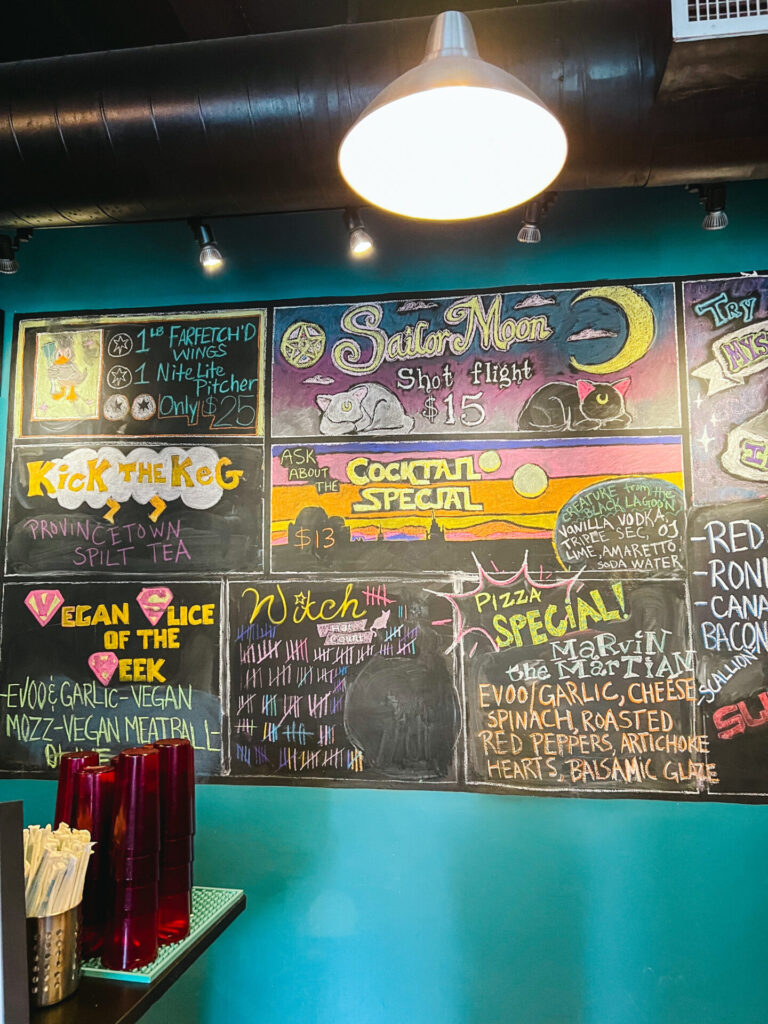 1 LB FARFETCH'D
WINGS
1 NITE LITE
PITCHER
ONLY $25
Sailor Moon
Shot flight
$15
TRY
KICK THE KEG
PROVINCETOWN
SPILT TEA
ASK
ABOUT
THE
COCKTAIL
SPECIAL
$13
CREATURE from the
BLACK LAGOON
VANILLA VODKA,
TRIPLE SEC, OJ
LIME, AMARETTO,
SODA WATER
VEGAN SLICE
OF THE
WEEK
-EVOO & GARLIC-VEGAN
MOZZ-VEGAN MEATBALL-
Witch
Hat
Count
PIZZA
SPECIAL!
MARVIN
the MARTIAN
EVOO/GARLIC, CHEESE
SPINACH, ROASTED
RED PEPPERS, ARTICHOKE
HEARTS, BALSAMIC GLAZE
-RED
-RONI
-CANA
BACON
-SCALLION
SU